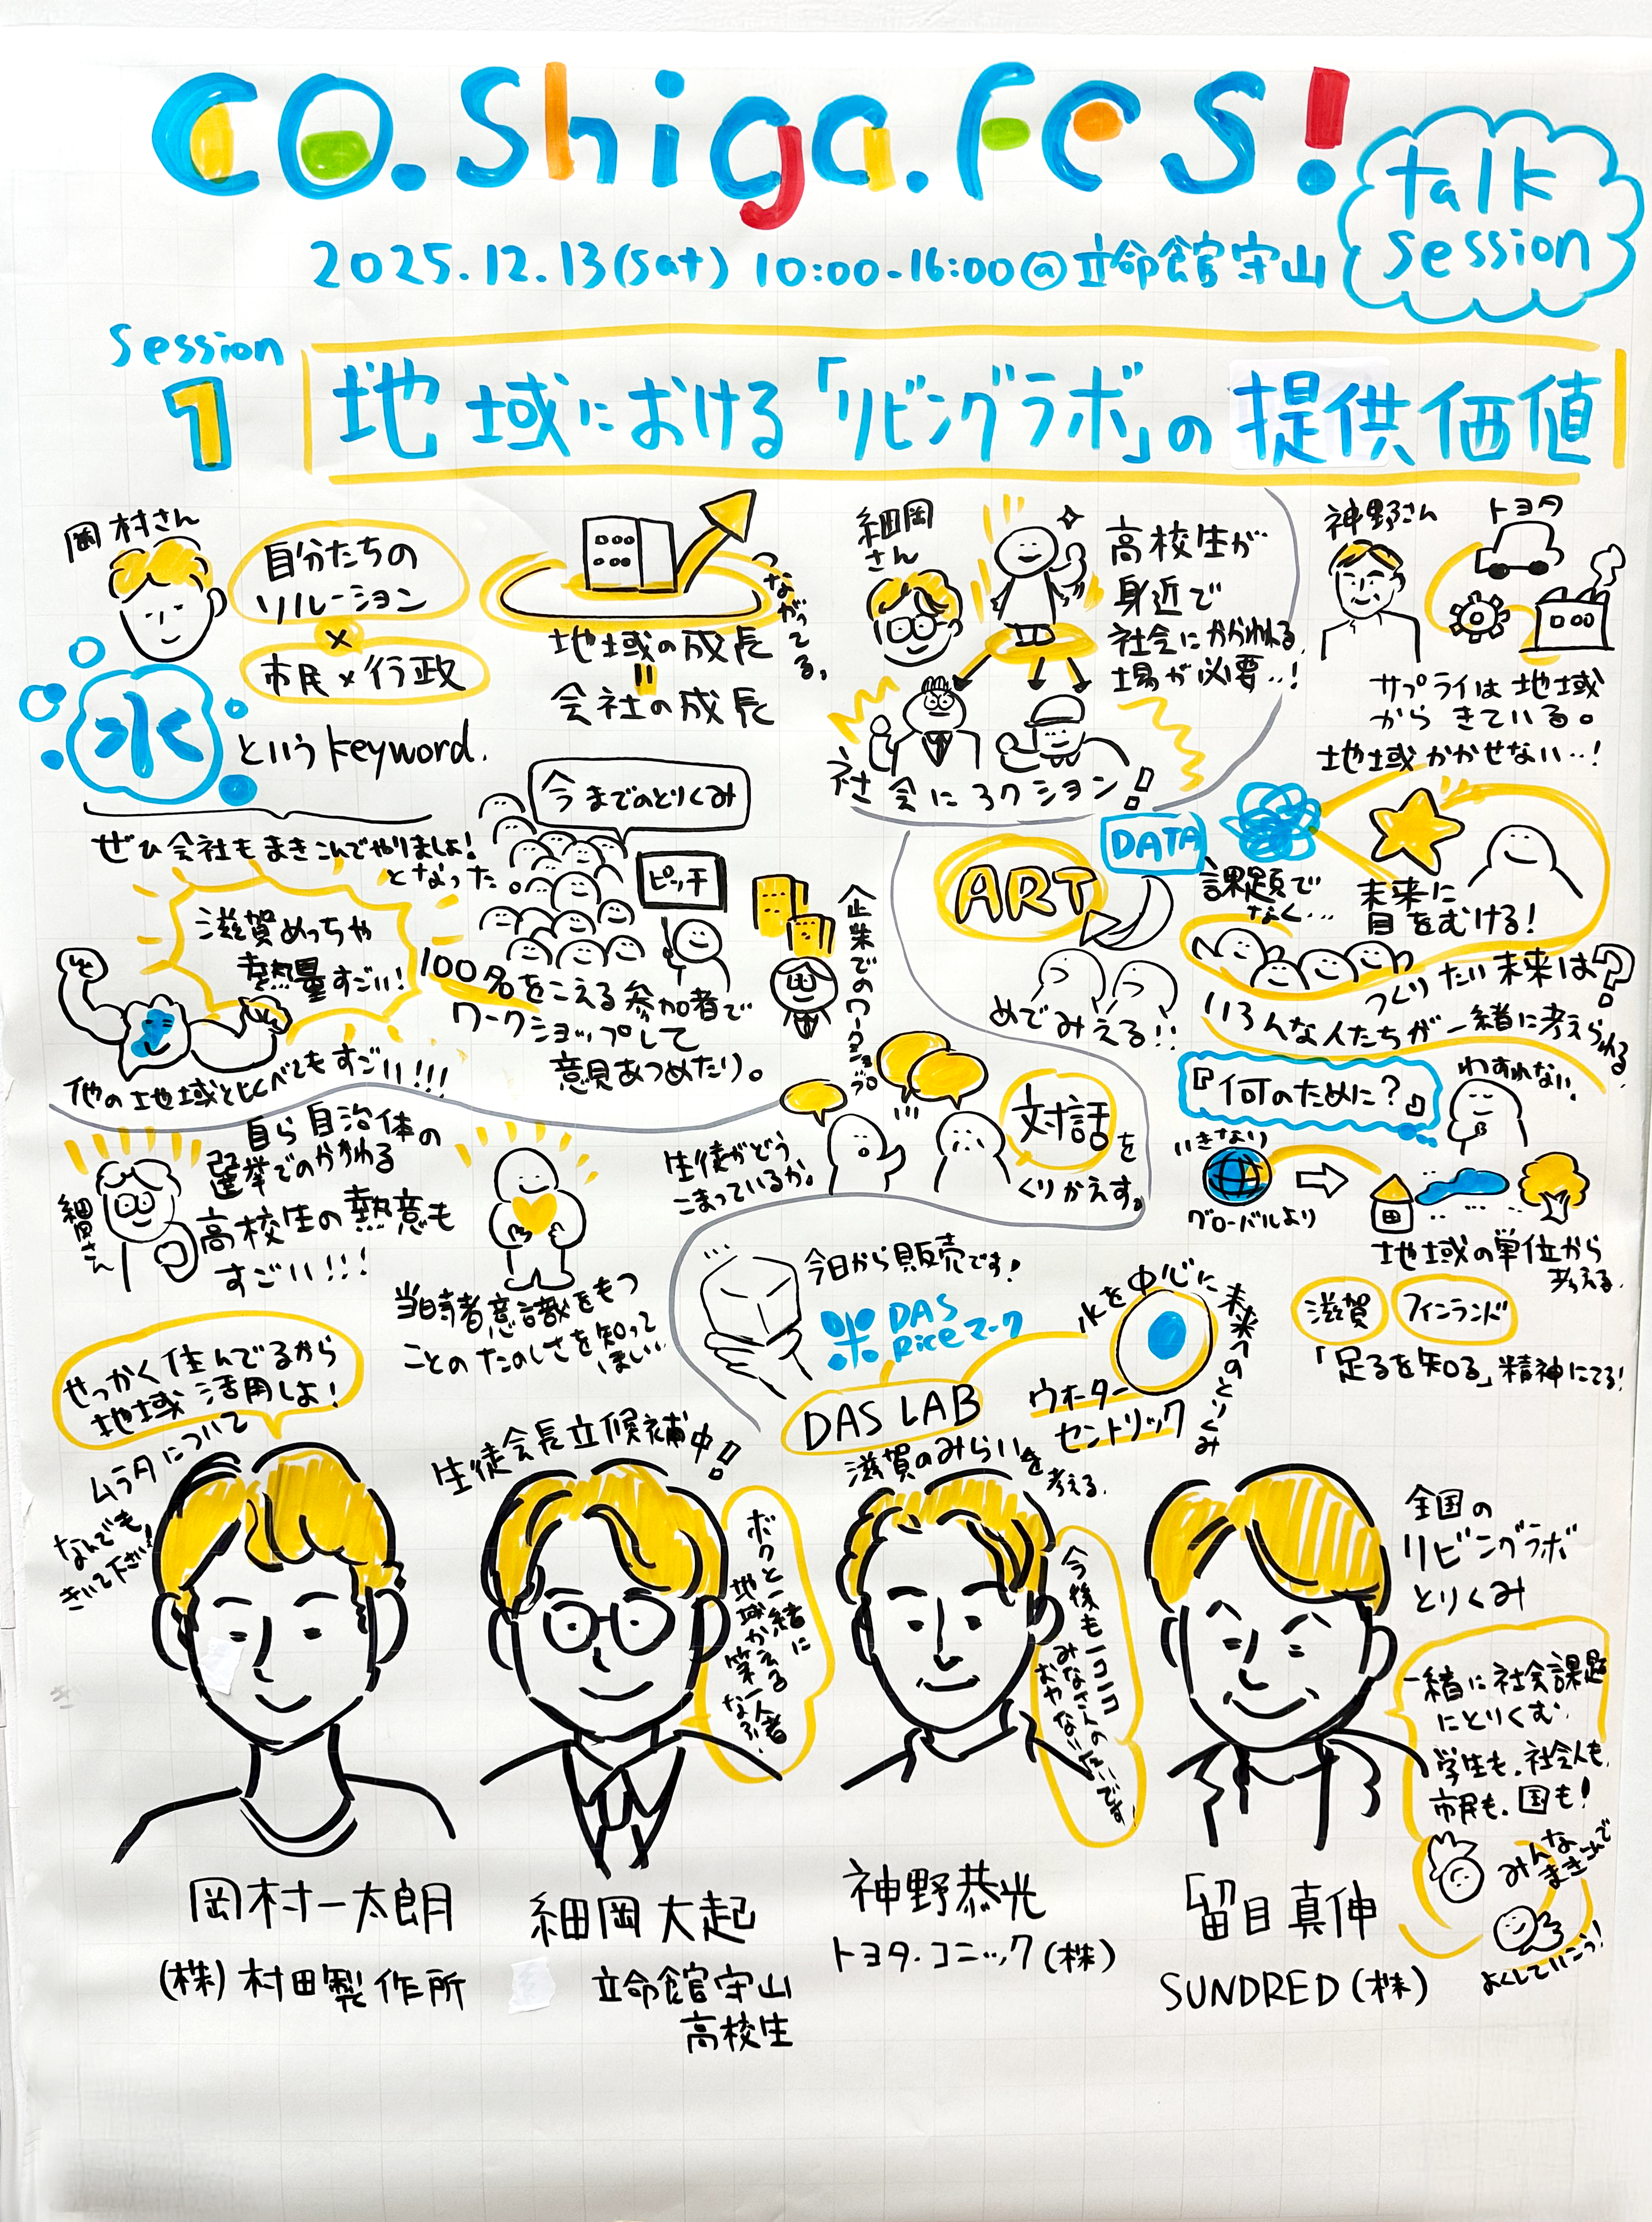 co.Shiga.Fes!
talk session
2025.12.13(sat) 10:00-16:00@立命館守山
Session 1
地域における「リビングラボ」の提供価値
岡村さん
自分たちの
ソリューション
×
市民×行政
水
というkeyword.
地域の成長
=
会社の成長
つながってる。
ぜひ会社もまきこんでやりましょ!
となった。
滋賀めっちゃ
熱量すごい!
他の地域と比べてもすごい!!!
今までのとりくみ
ピッチ
100名をこえる参加者で
ワークショップして
意見あつめたり。
企業でのワークショップ
細岡さん
高校生が
身近で
社会にかかわれる
場が必要..!
社会にアクション!
神野さん
トヨタ
サプライは地域
からきている。
地域かかせない...!
DATA
ART
めでみえる!!
課題で
なく...
未来に
目をむける!
つくりたい未来は?
いろんな人たちが一緒に考えられる
『何のために?』
わすれない
いきなり
グローバルより
地域の単位から
考える
滋賀
フィンランド
「足るを知る」精神にてる!
生徒がどう
こまっているか。
対話を
くりかえす。
細岡さん
自ら自治体の
選挙でのかかわる
高校生の熱意も
すごい!!!
当時者意識をもつ
ことのたのしさを知って
ほしい..
今日から販売です!
米 DAS
Riceマーク
水を中心に
未来へのとりくみ
ウォーター
セントリック
DAS LAB
滋賀のみらいを
考える.
せっかく住んでるから
地域活用しよ!
ムラタについて
なんでも
きいて下さい!
岡村一太朗
(株)村田製作所
生徒会長立候補中!
ボクと一緒に
地域か笑える
細岡大起
立命館守山
高校生
今後もニコニコ
みなさんの
神野恭光
トヨタ・コニック(株)
全国の
リビングラボ
とりくみ
一緒に社会課題
にとりくむ.
学生も.社会人も.
市民も.国も!
みんな
まきこんで
よくしていこう!
留目真伸
SUNDRED(株)